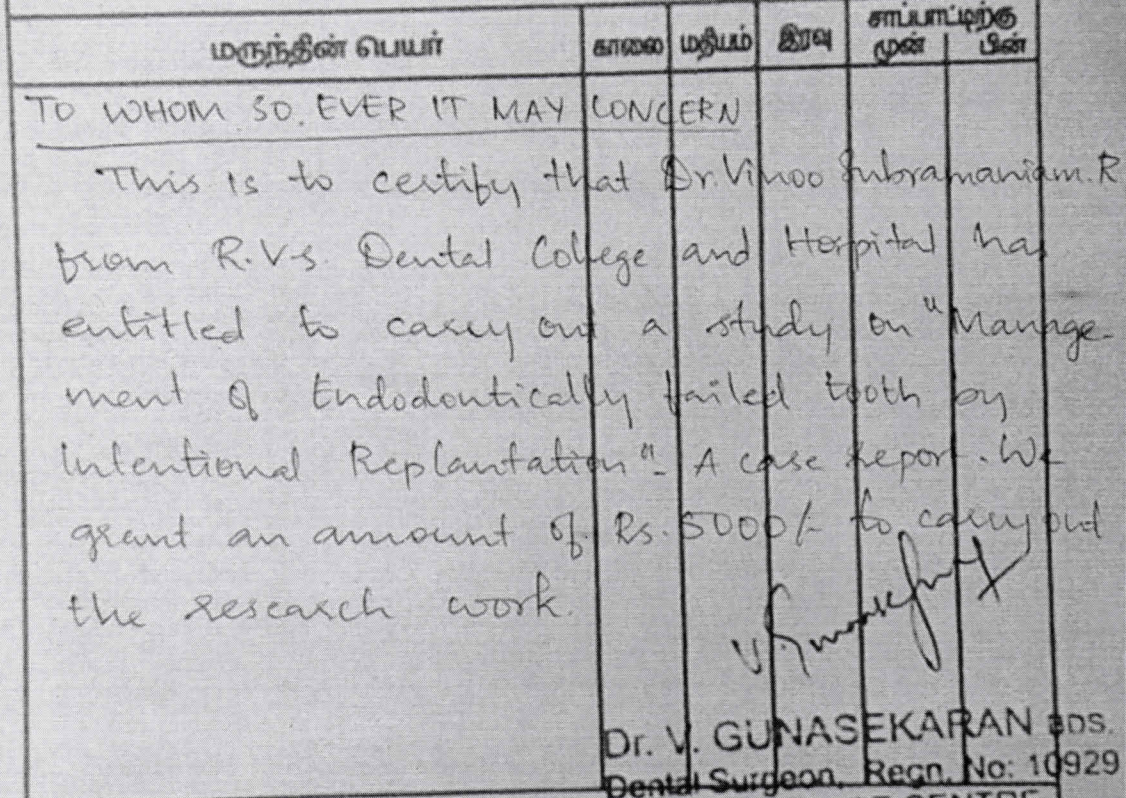 மருந்தின் பெயர் காலை மதியம் இரவு சாப்பாட்டிற்கு
முன் பின்
TO WHOM SO EVER IT MAY CONCERN
This is to certify that Dr. Vinoo Subramaniam. R
from R.V.S. Dental College and Hospital has
entitled to carry out a study on "Manage-
ment of Endodontically failed tooth by
Intentional Replantation" - A case report. We
grant an amount of Rs. 5000/- to carry out
the research work.
Dr. V. GUNASEKARAN BDS.
Dental Surgeon, Regn. No: 10929
CENTRE